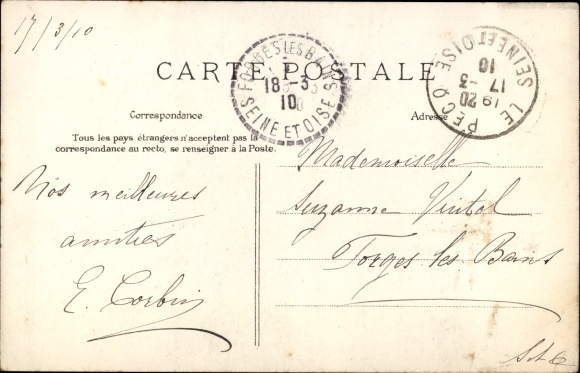 17/3/10
CARTE POSTALE
FORGES LES BAINS
18-3
10
SEINE ET OISE
LE PECQ
19 20
17-3
10
SEINE ET OISE
Correspondance
Adresse
Tous les pays étrangers n'acceptent pas la
correspondance au recto, se renseigner à la Poste.
Nos meilleures
amitiés
E. Corbin
Mademoiselle
Suzanne
Forges les Bains
S et O